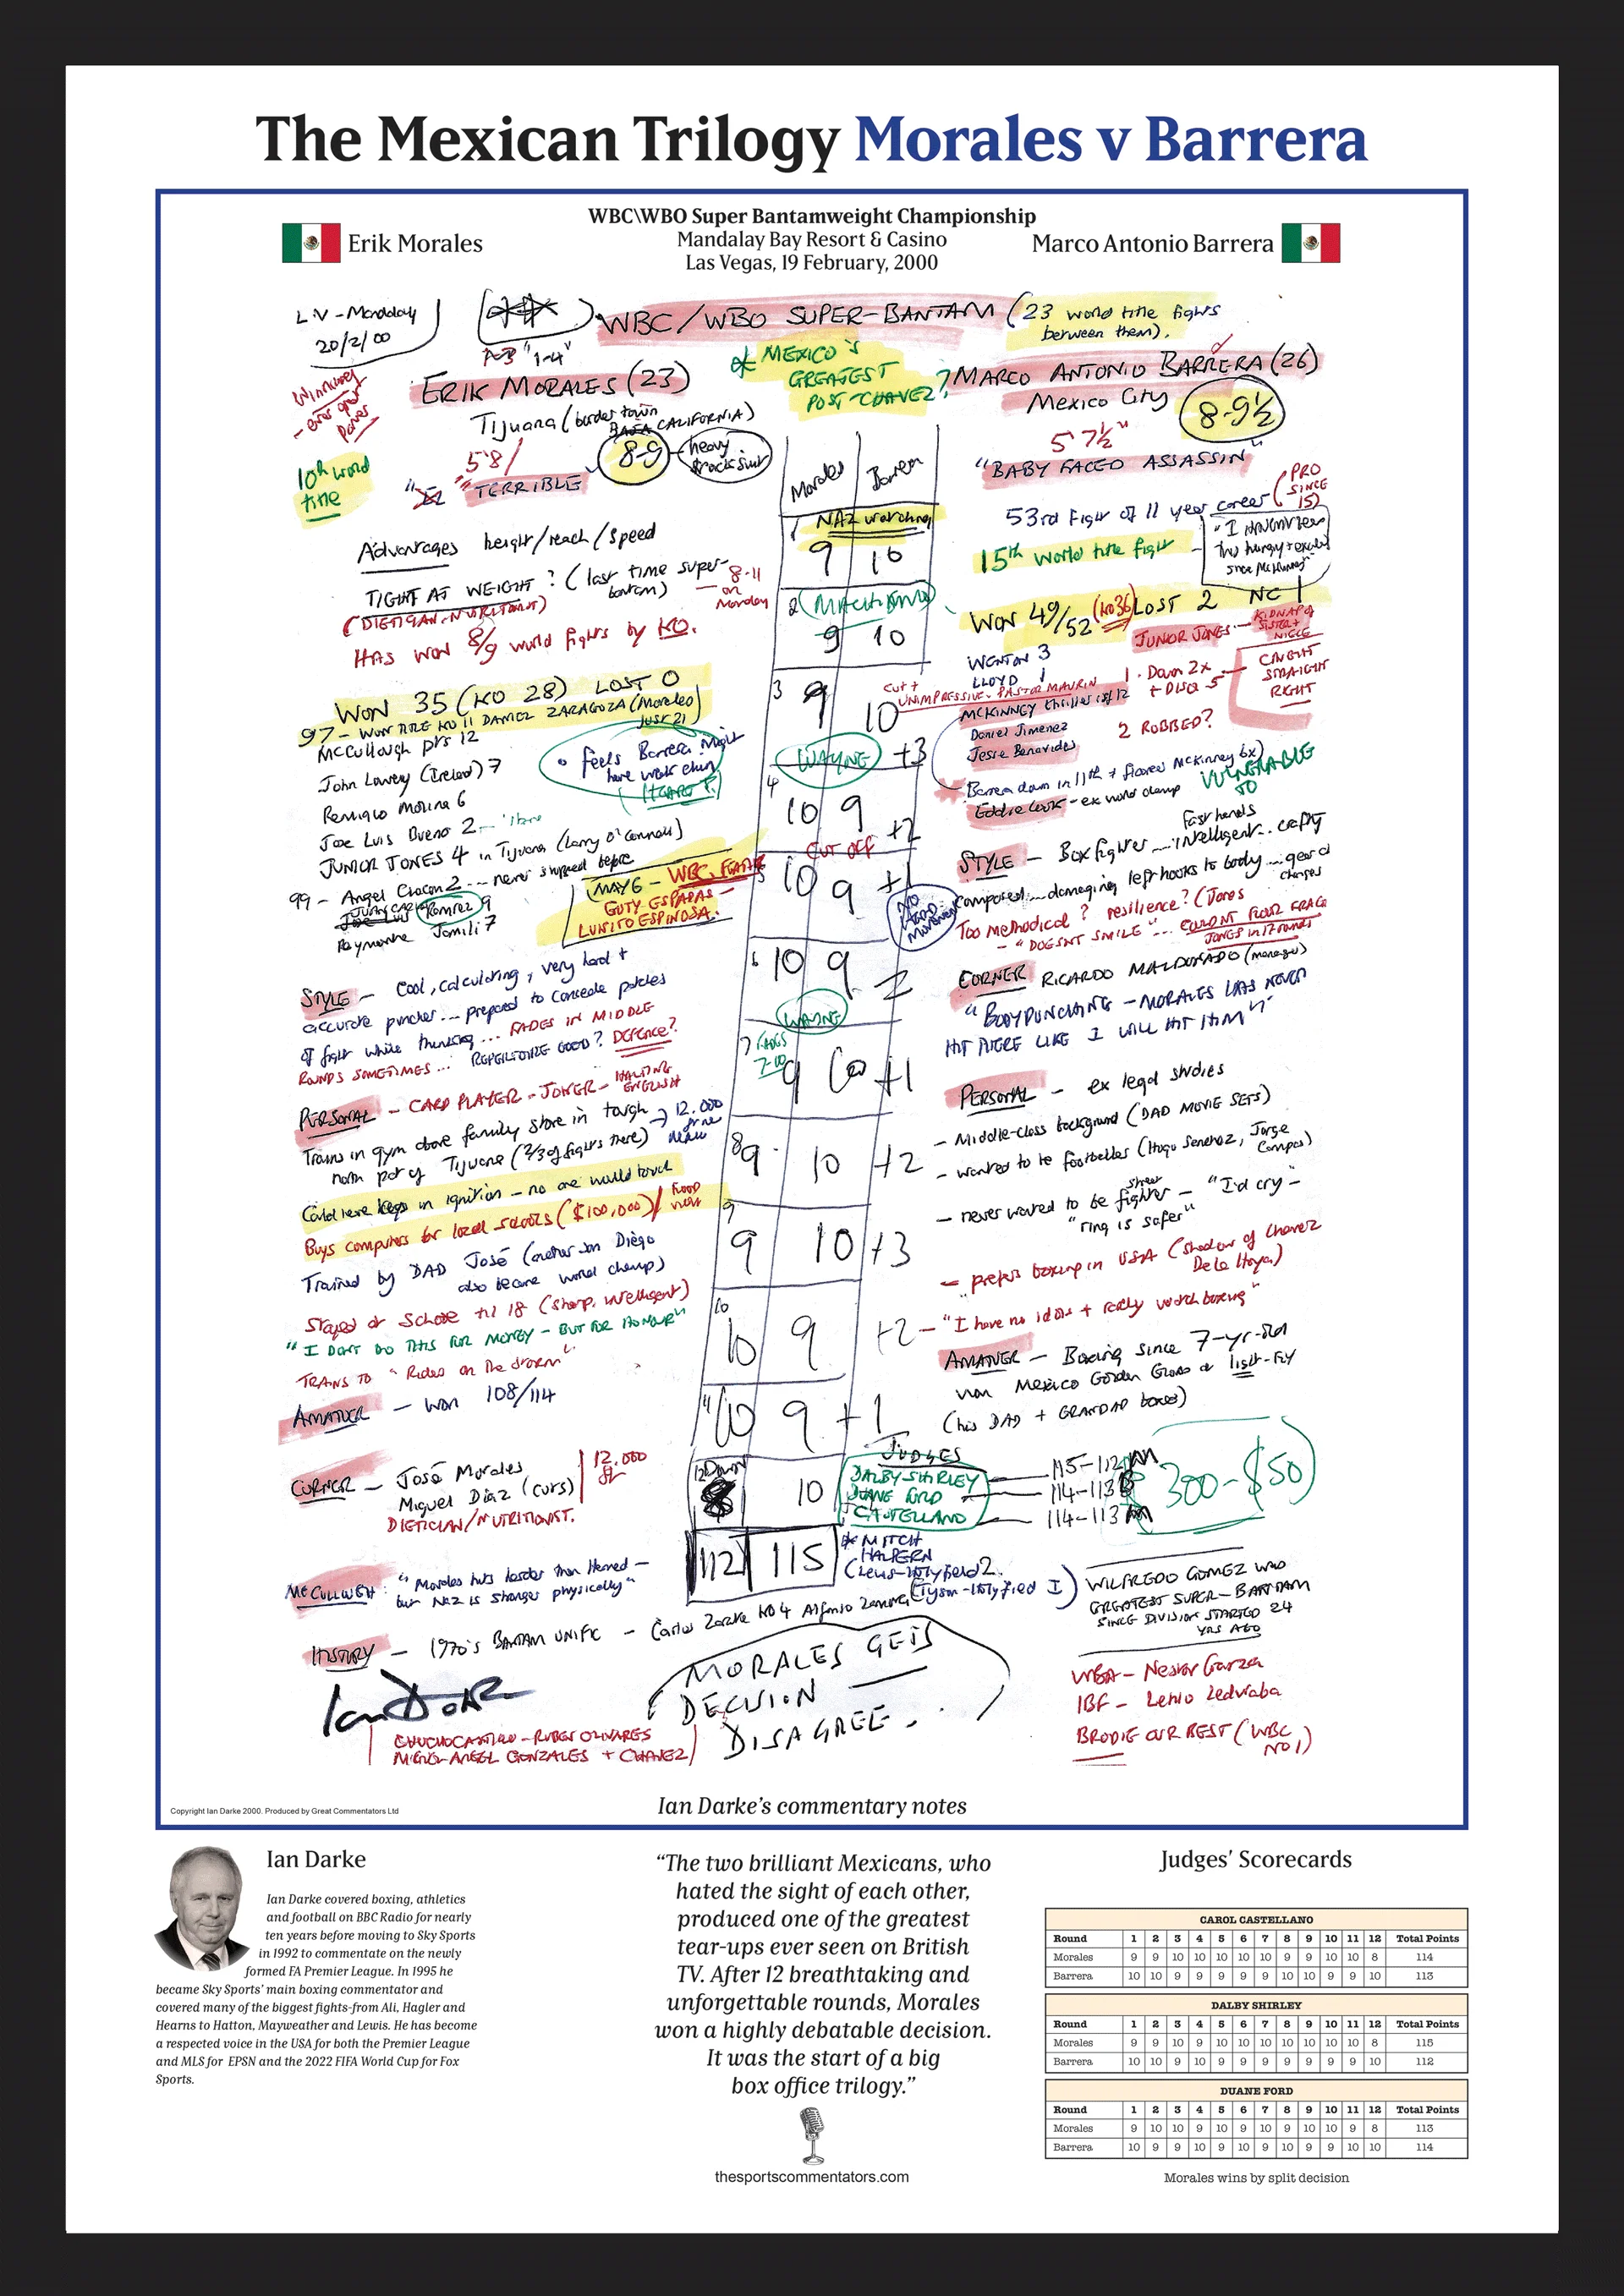 The Mexican Trilogy Morales v Barrera
WBC\WBO Super Bantamweight Championship
Erik Morales
Mandalay Bay Resort & Casino
Marco Antonio Barrera
Las Vegas, 19 February, 2000
L.V - Mandalay
20/2/00
WBC/WBO SUPER-BANTAM (23 world title fights
between them).
"1-4"
* MEXICO'S
GREATEST
POST-CHAVEZ?
ERIK MORALES (23)
MARCO ANTONIO BARRERA (26)
Tijuana (border town
BAJA CALIFORNIA)
Mexico City
8-9½
5'8
8-9
heavy
5 7½"
10th world
title
"TERRIBLE
"BABY FACED ASSASSIN"
Morales Barrera
53rd Fight of 11 year career (PRO
SINCE
15)
1 NAZ watching
9 10
Advantages height/reach/speed
15th world title fight
TIGHT AT WEIGHT? (last time super-
bantam)
8-11
on
Monday
(DIETICIAN-NUTRITIONIST)
HAS WON 8/9 world fights by KO.
2
9 10
WON 49/52 (KO36) LOST 2 NC 1
JUNIOR JONES - KIDNAP of
SISTER +
NIECE
WON 35 (KO 28) LOST 0
97 - WON TITLE KO 11 DANIEL ZARAGOZA (Morales
just 21)
McCullough pts 12
John Lowey (Ireland) 7
Remigio Molina 6
Joe Luis Bueno 2
JUNIOR JONES 4 in Tijuana (Larry O'Connell)
99 - Angel Chacon 2 ... never stopped before
Ramirez 9
Jamili 7
Feels Barrera might
have weak chin
3 9 10
WAYNE +3
WENTON 3
LLOYD 1
cut +
UNIMPRESSIVE - PASTOR MAURIN
1. Down 2x
+ DISQ 5
CAUGHT
STRAIGHT
RIGHT
Daniel Jimenez
Jesse Benavides
2 ROBBED?
Barrera down in 11th + floored McKinney 6x)
Eddie Cook - ex world champ
VULNERABLE
TO
4 10 9 +2
CUT OFF
MAY 6 - WBC FEATHER
GUTY ESPADAS -
LUISITO ESPINOSA.
10 9 +1
NO
HEAD
MOVEMENT
STYLE - Box fighter ... intelligent .. crafty
Fast hands
composed .... damaging left hooks to body ... gear
changes
Too methodical? resilience? (Jones
- "DOESNT SMILE" ...
6 10 9 2
STYLE - Cool, calculating, very hard +
accurate puncher ... prepared to concede patches
of fight while thinking ... FADES IN MIDDLE
ROUNDS SOMETIMES ... REPERTOIRE GOOD? DEFENCE?
CORNER RICARDO MALDONADO (manager)
"BODYPUNCHING - MORALES HAS NEVER
HIT THERE LIKE I WILL HIT HIM"
WAYNE
7 9 10 +1
PERSONAL - CARD PLAYER - JOKER - HALTING
ENGLISH
Trains in gym above family store in tough
north part of Tijuana (2/3 of fights there)
12.000
Could leave keys in ignition - no one would touch
Buys computers for local schools ($100,000)
PERSONAL - ex legal studies
- Middle-class background (DAD MOVIE SETS)
- wanted to be footballer (Hugo Sanchez, Jorge
Campos)
- never wanted to be street fighter - "I'd cry -
"ring is safer"
8 9 10 +2
9 9 10 +3
Trained by DAD José (another son Diego
also became world champ)
Stayed at School til 18 (sharp, intelligent)
"I DONT DO THIS FOR MONEY - BUT FOR HONOUR"
TRAINS TO "Riders on the storm"
- prefers boxing in USA (shadow of Chavez
De La Hoya)
- "I have no idols + rarely watch boxing"
10 10 9 +2
AMATEUR - won 108/114
AMATEUR - Boxing since 7-yr-old
won Mexico Golden Gloves at light-fly
(his DAD + GRANDAD boxed)
11 10 9 +1
CORNER - José Morales
Miguel Diaz (cuts)
DIETICIAN/NUTRITIONIST.
12.000
ft
12 DOWN
8 10
JUDGES
DALBY SHIRLEY 115-112 M
DUANE FORD 114-113 B
CASTELLANO 114-113 M
300-$50
112 115
* MITCH
HALPERN
(Lewis-Holyfield 2.
Tyson-Holyfield I)
McCULLOUGH: "Morales hits harder than Hamed -
but NAZ is stronger physically"
WILFREDO GOMEZ WAS
GREATEST SUPER-BANTAM
SINCE DIVISION STARTED 24
YRS AGO
HISTORY - 1970's BANTAM UNIFIC - Carlos Zarate KO 4 Alfonso Zamora
MORALES GETS
DECISION
DISAGREE...
WBA - Nestor Garza
IBF - Lehlo Ledwaba
BRODIE OUR BEST (WBC
NO 1)
Ian Darke
CHUCHO CASTILLO - RUBEN OLIVARES
MIGUEL-ANGEL GONZALES + CHAVEZ
Copyright Ian Darke 2000. Produced by Great Commentators Ltd
Ian Darke's commentary notes
Ian Darke
Ian Darke covered boxing, athletics
and football on BBC Radio for nearly
ten years before moving to Sky Sports
in 1992 to commentate on the newly
formed FA Premier League. In 1995 he
became Sky Sports' main boxing commentator and
covered many of the biggest fights-from Ali, Hagler and
Hearns to Hatton, Mayweather and Lewis. He has become
a respected voice in the USA for both the Premier League
and MLS for EPSN and the 2022 FIFA World Cup for Fox
Sports.
"The two brilliant Mexicans, who
hated the sight of each other,
produced one of the greatest
tear-ups ever seen on British
TV. After 12 breathtaking and
unforgettable rounds, Morales
won a highly debatable decision.
It was the start of a big
box office trilogy."
thesportscommentators.com
Judges' Scorecards
CAROL CASTELLANO
Round 1 2 3 4 5 6 7 8 9 10 11 12 Total Points
Morales 9 9 10 10 10 10 10 9 9 10 10 8 114
Barrera 10 10 9 9 9 9 9 10 10 9 9 10 113
DALBY SHIRLEY
Round 1 2 3 4 5 6 7 8 9 10 11 12 Total Points
Morales 9 9 10 9 10 10 10 10 10 10 10 8 115
Barrera 10 10 9 10 9 9 9 9 9 9 9 10 112
DUANE FORD
Round 1 2 3 4 5 6 7 8 9 10 11 12 Total Points
Morales 9 10 10 9 10 9 10 9 10 10 9 8 113
Barrera 10 9 9 10 9 10 9 10 9 9 10 10 114
Morales wins by split decision